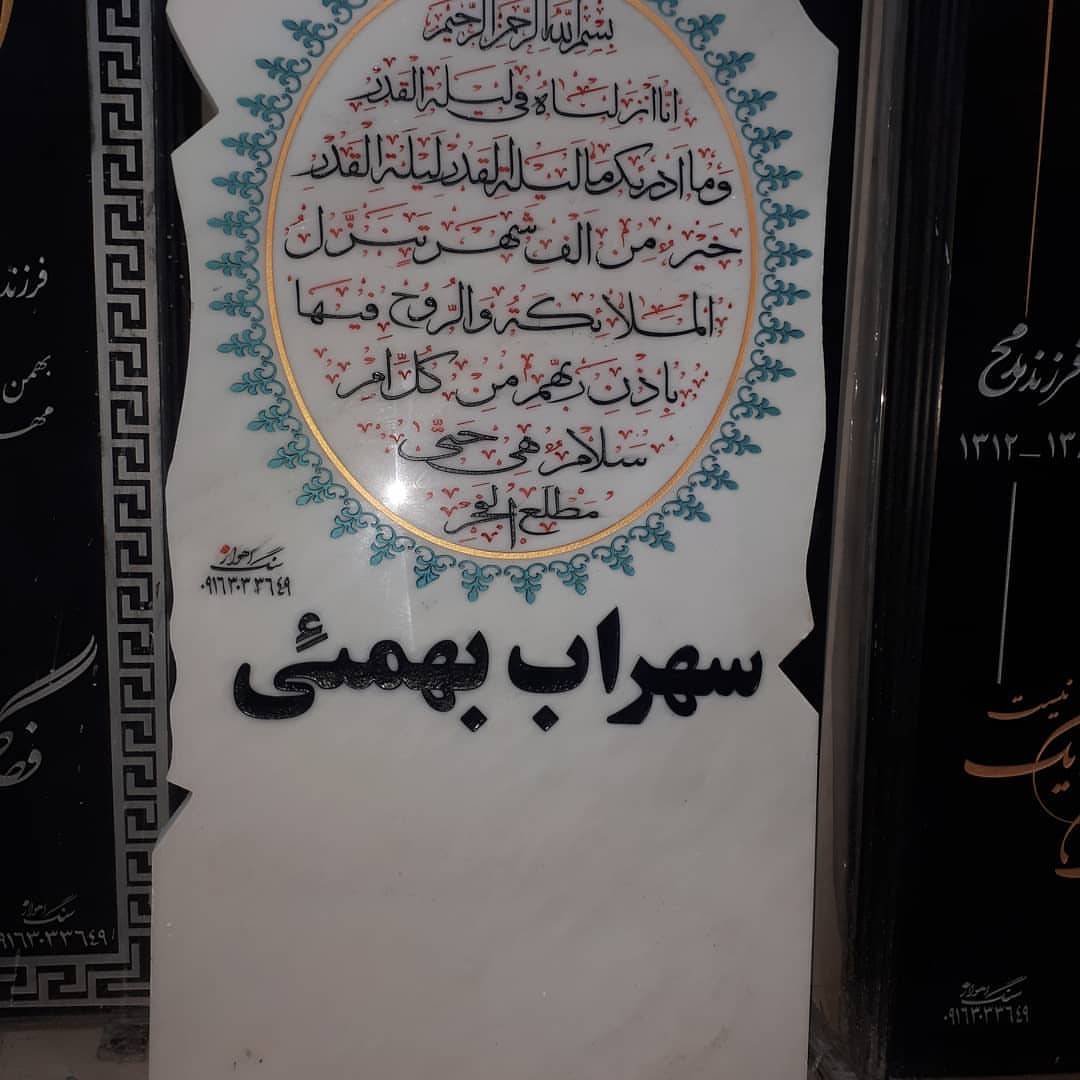 بسم الله الرحمن الرحیم
انا انزلناه فی لیلة القدر
وما ادریک ما لیلة القدر لیلة القدر
خیر من الف شهر تنزل
الملائکة والروح فیها
باذن ربهم من کل امر
سلام هی حتی
مطلع الفجر
سنگ اهواز
۰۹۱۶۳۰۳۳۶۴۹
سهراب بهمئی
فرزند
بهمن
سنگ اهواز
۰۹۱۶۳۰۳۳۶۴۹
فرزند
۱۳۱۲
نیست
سنگ اهواز
۰۹۱۶۳۰۳۳۶۴۹